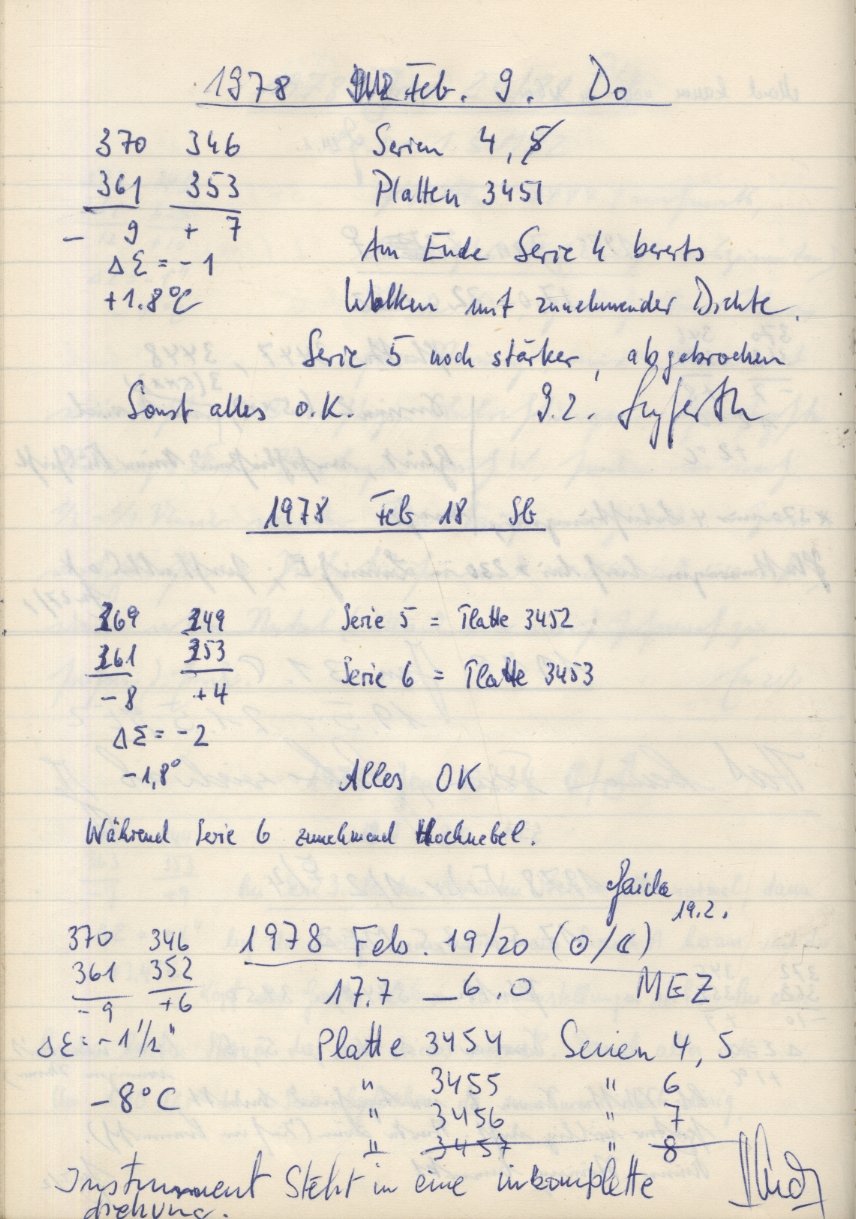 1978 Feb. 9. Do
370 346 Serien 4, 5
361 353 Platten 3451
- 9 + 7
Am Ende Serie 4 bereits
Δε = - 1
+1.8°C Wolken mit zunehmender Dichte.
Serie 5 noch stärker, abgebrochen
Sonst alles o.K. 9.2.
1978 Feb 18 Sb
369 349 Serie 5 = Platte 3452
361 353 Serie 6 = Platte 3453
- 8 + 4
Δε = - 2
-1,8° Alles OK
Während Serie 6 zunehmend Hochnebel.
19.2.
370 346 1978 Feb. 19/20 (☉/☾)
361 352 17.7 _ 6.0 MEZ
- 9 +6
Δε = - 1 1/2" Platte 3454 Serien 4, 5
-8°C " 3455 " 6
" 3456 " 7
" 3457 " 8
Instrument Steht in eine inkomplette
drehung.